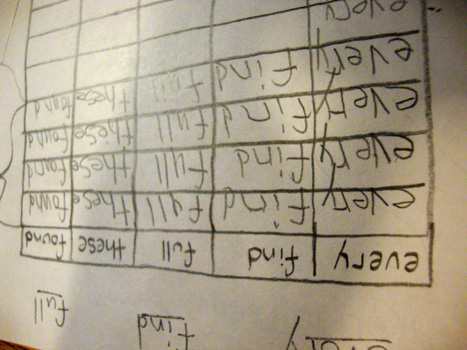 every find full
every find full these found
every find full these found
every find full these found
every find full these found
every find full these found
every